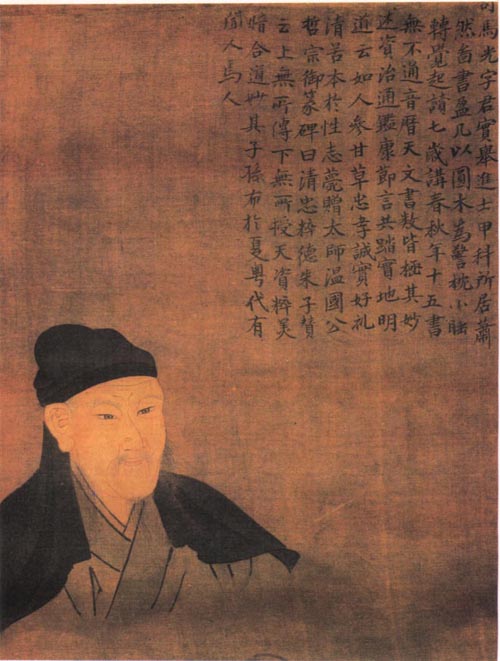 司馬光字君實舉進士甲科所居蕭
然啚書盈几以圓木為警枕小睡
轉覺起讀七歲講春秋年十五書
無不通音曆天文書数皆極其妙
述資治通鑑康節言其踏實地明
道云如人參甘草忠孝誠實好礼
清苦本於性志薨贈太師溫國公
哲宗御篆碑曰清忠粹德朱子贊
云上無所傳下無所授天資粹美
暗合道妙其子孫布於夏粤代有
人